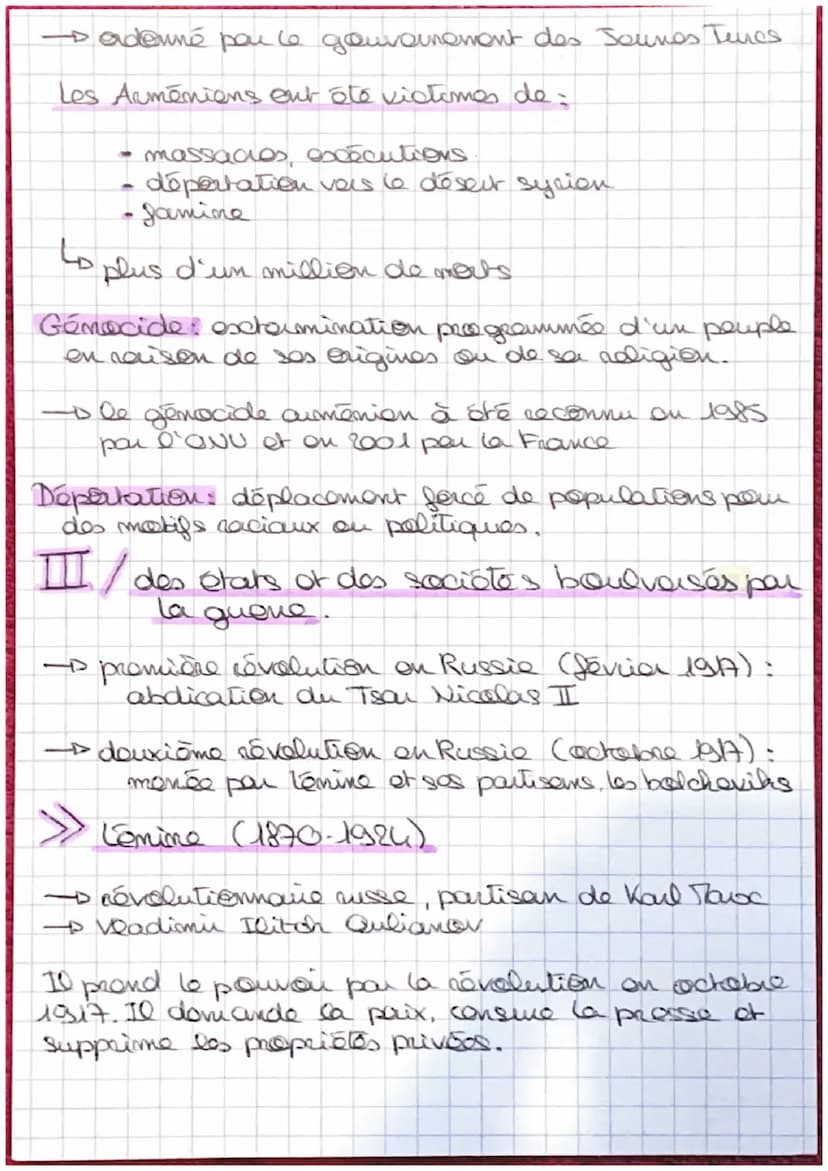 → ordonné par le gouvernement des Jeunes Turcs
Les Arméniens ont été victimes de :
- massacres, exécutions.
- déportation vers le désert syrien
- famine
↳ plus d'un million de morts
Génocide : extermination programmée d'un peuple
en raison de ses origines ou de sa religion.
→ le génocide arménien à été reconnu en 1985
par l'ONU et en 2001 par la France
Déportation : déplacement forcé de populations pour
des motifs raciaux ou politiques.
III / des états et des sociétés boulversés par
la guerre.
→ première révolution en Russie (février 1917) :
abdication du Tsar Nicolas II
→ deuxième révolution en Russie (octobre 1917) :
menée par Lénine et ses partisans, les bolcheviks
>> Lénine (1870-1924)
→ révolutionnaire russe, partisan de Karl Marx
→ Vladimir Ilitch Oulianov
Il prend le pouvoir par la révolution en octobre
1917. Il demande la paix, censure la presse et
supprime les propriétés privées.